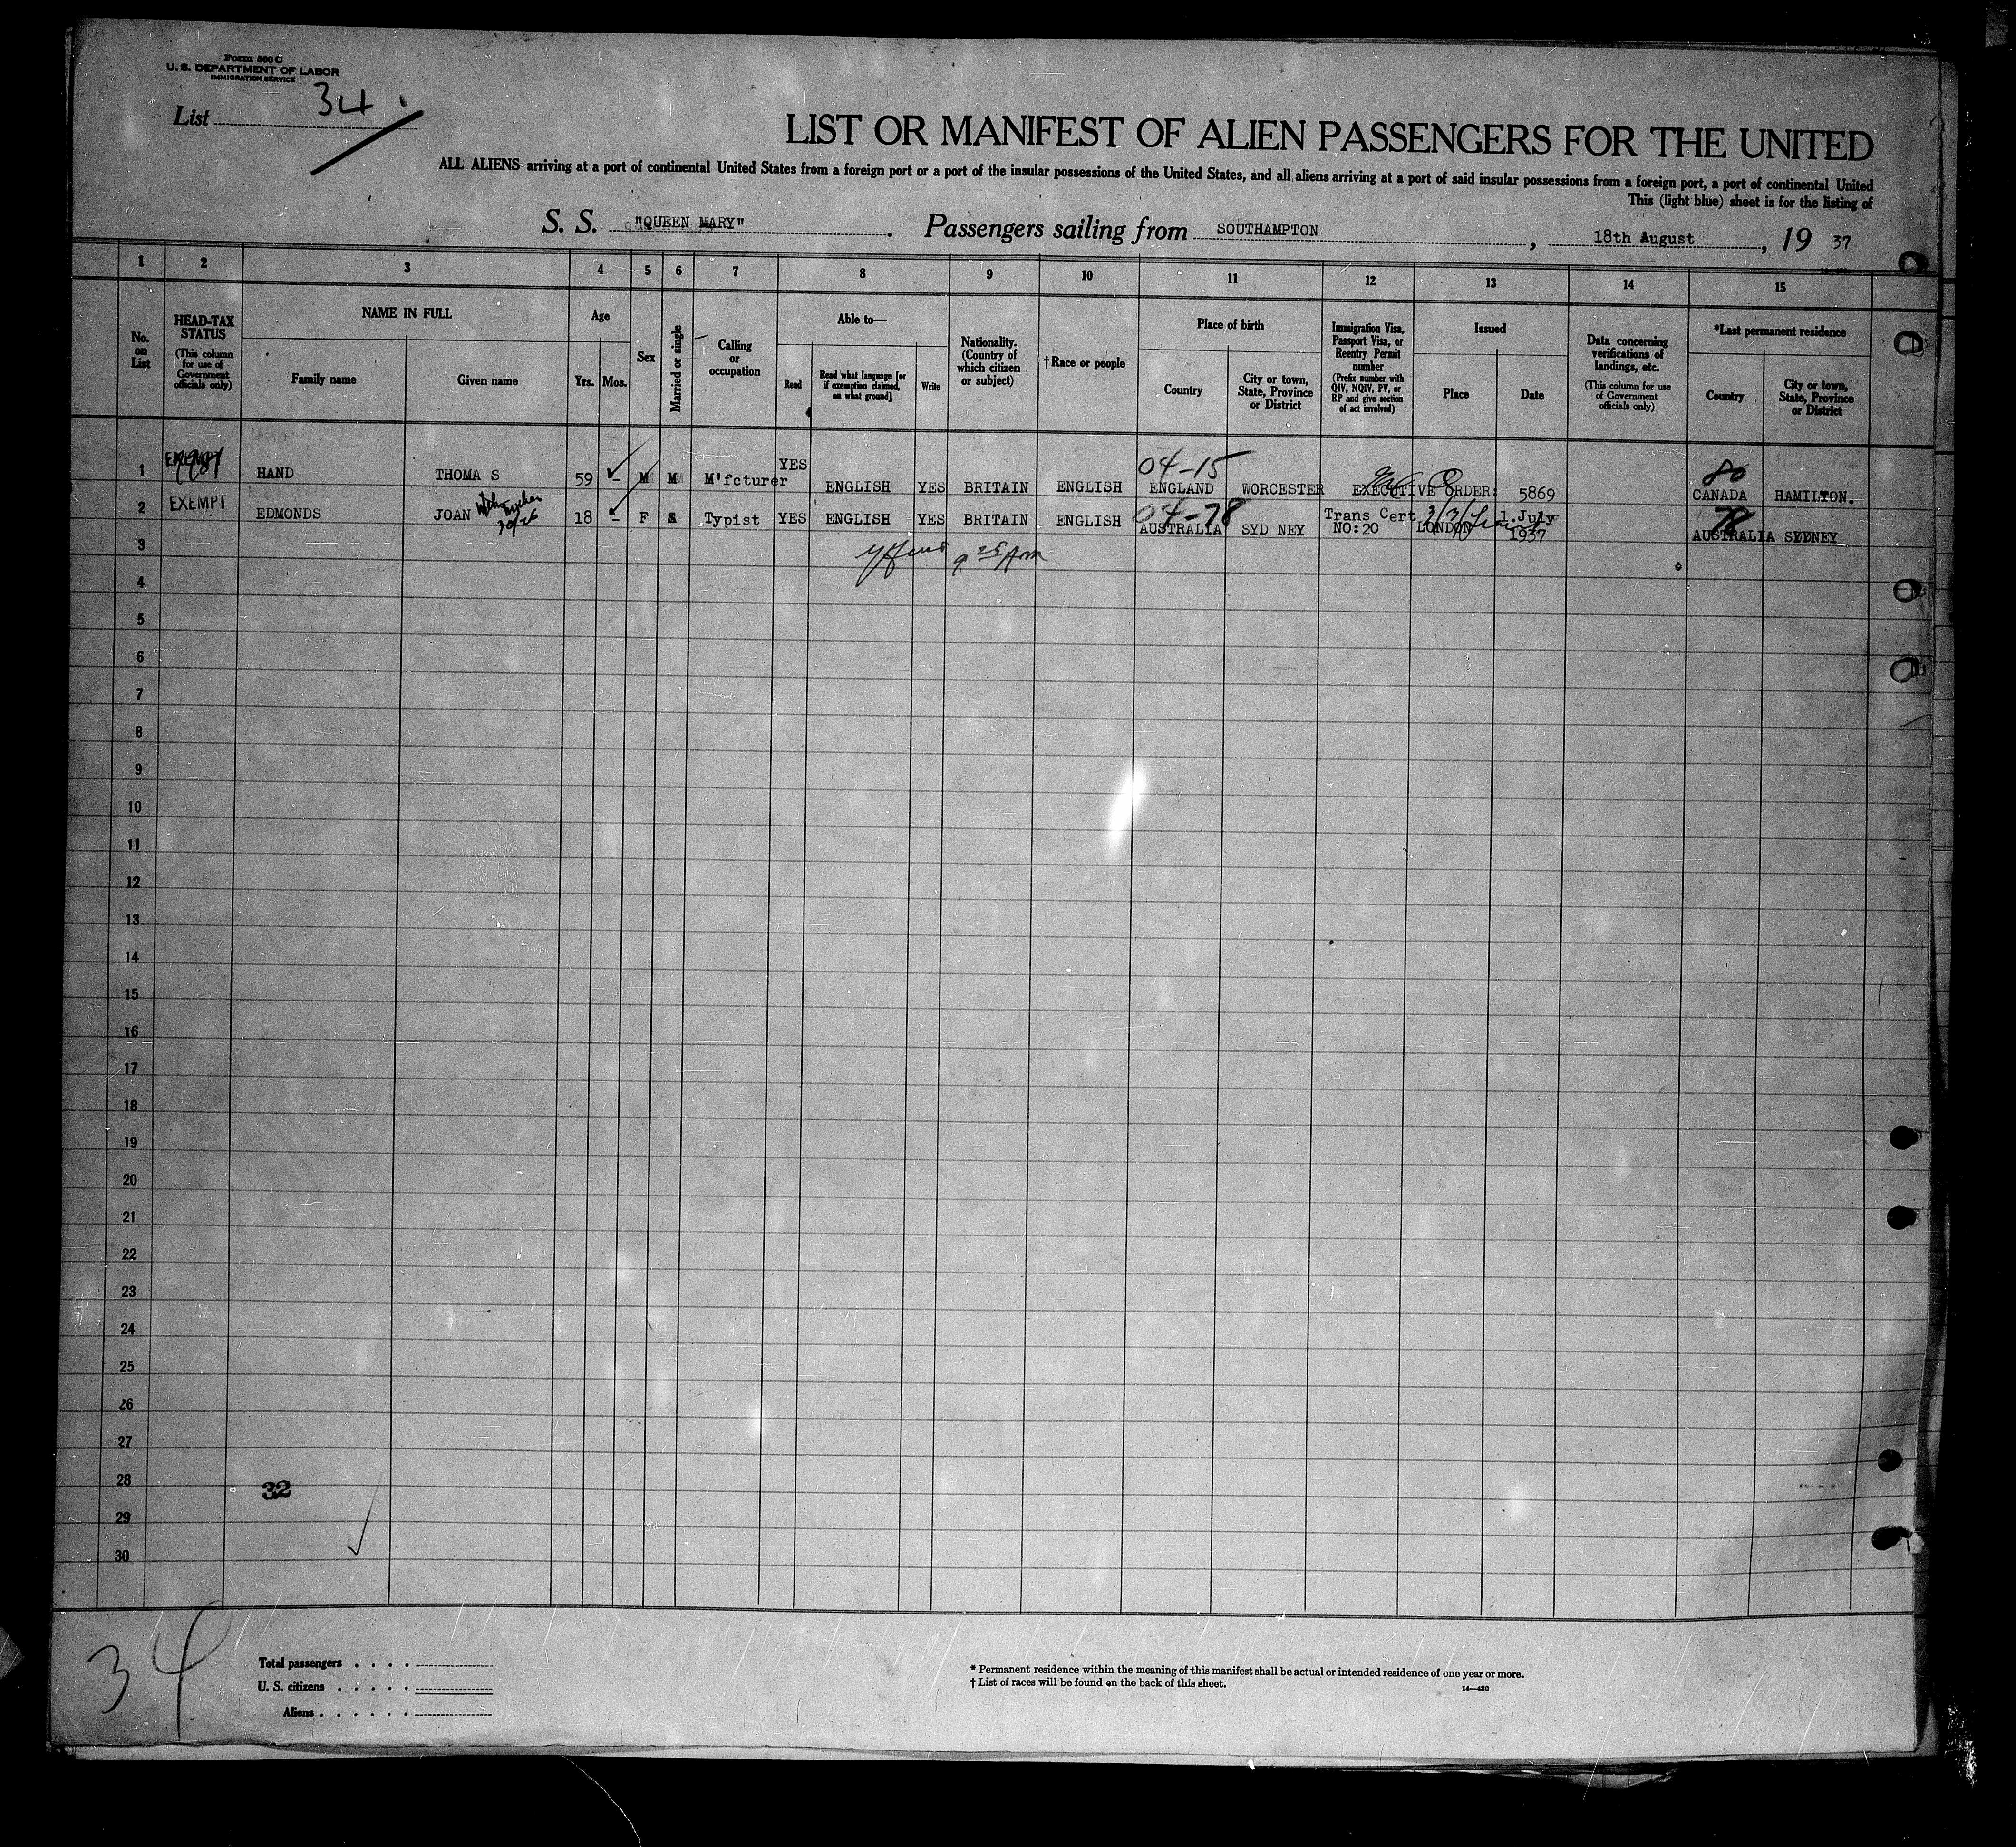 Form 500 C
U. S. DEPARTMENT OF LABOR
IMMIGRATION SERVICE
List 34
LIST OR MANIFEST OF ALIEN PASSENGERS FOR THE UNITED
ALL ALIENS arriving at a port of continental United States from a foreign port or a port of the insular possessions of the United States, and all aliens arriving at a port of said insular possessions from a foreign port, a port of continental United
This (light blue) sheet is for the listing of
S. S. "QUEEN MARY" . Passengers sailing from SOUTHAMPTON , 18th August , 19 37
1 2 3 4 5 6 7 8 9 10 11 12 13 14 15
No. on List
HEAD-TAX STATUS (This column for use of Government officials only)
NAME IN FULL
Family name Given name
Age
Yrs. Mos.
Sex
Married or single
Calling or occupation
Able to—
Read
Read what language [or if exemption claimed, on what ground]
Write
Nationality. (Country of which citizen or subject)
†Race or people
Place of birth
Country
City or town, State, Province or District
Immigration Visa, Passport Visa, or Reentry Permit number (Prefix number with QIV, NQIV, PV, or RP and give section of act involved)
Issued
Place Date
Data concerning verifications of landings, etc. (This column for use of Government officials only)
*Last permanent residence
Country
City or town, State, Province or District
04-15 80
1 EXEMPT HAND THOMA S 59 - M M M'fcturer YES ENGLISH YES BRITAIN ENGLISH ENGLAND WORCESTER EXECUTIVE ORDER: 5869 CANADA HAMILTON.
04-78 78
2 EXEMPT EDMONDS JOAN 18 - F S Typist YES ENGLISH YES BRITAIN ENGLISH AUSTRALIA SYD NEY Trans Cert NO:20 LONDON 1.July 1937 AUSTRALIA SYDNEY
3
4
5
6
7
8
9
10
11
12
13
14
15
16
17
18
19
20
21
22
23
24
25
26
27
28 32
29
30
34
Total passengers . . . .
U. S. citizens . . . . .
Aliens . . . . . .
* Permanent residence within the meaning of this manifest shall be actual or intended residence of one year or more.
† List of races will be found on the back of this sheet.
14—430